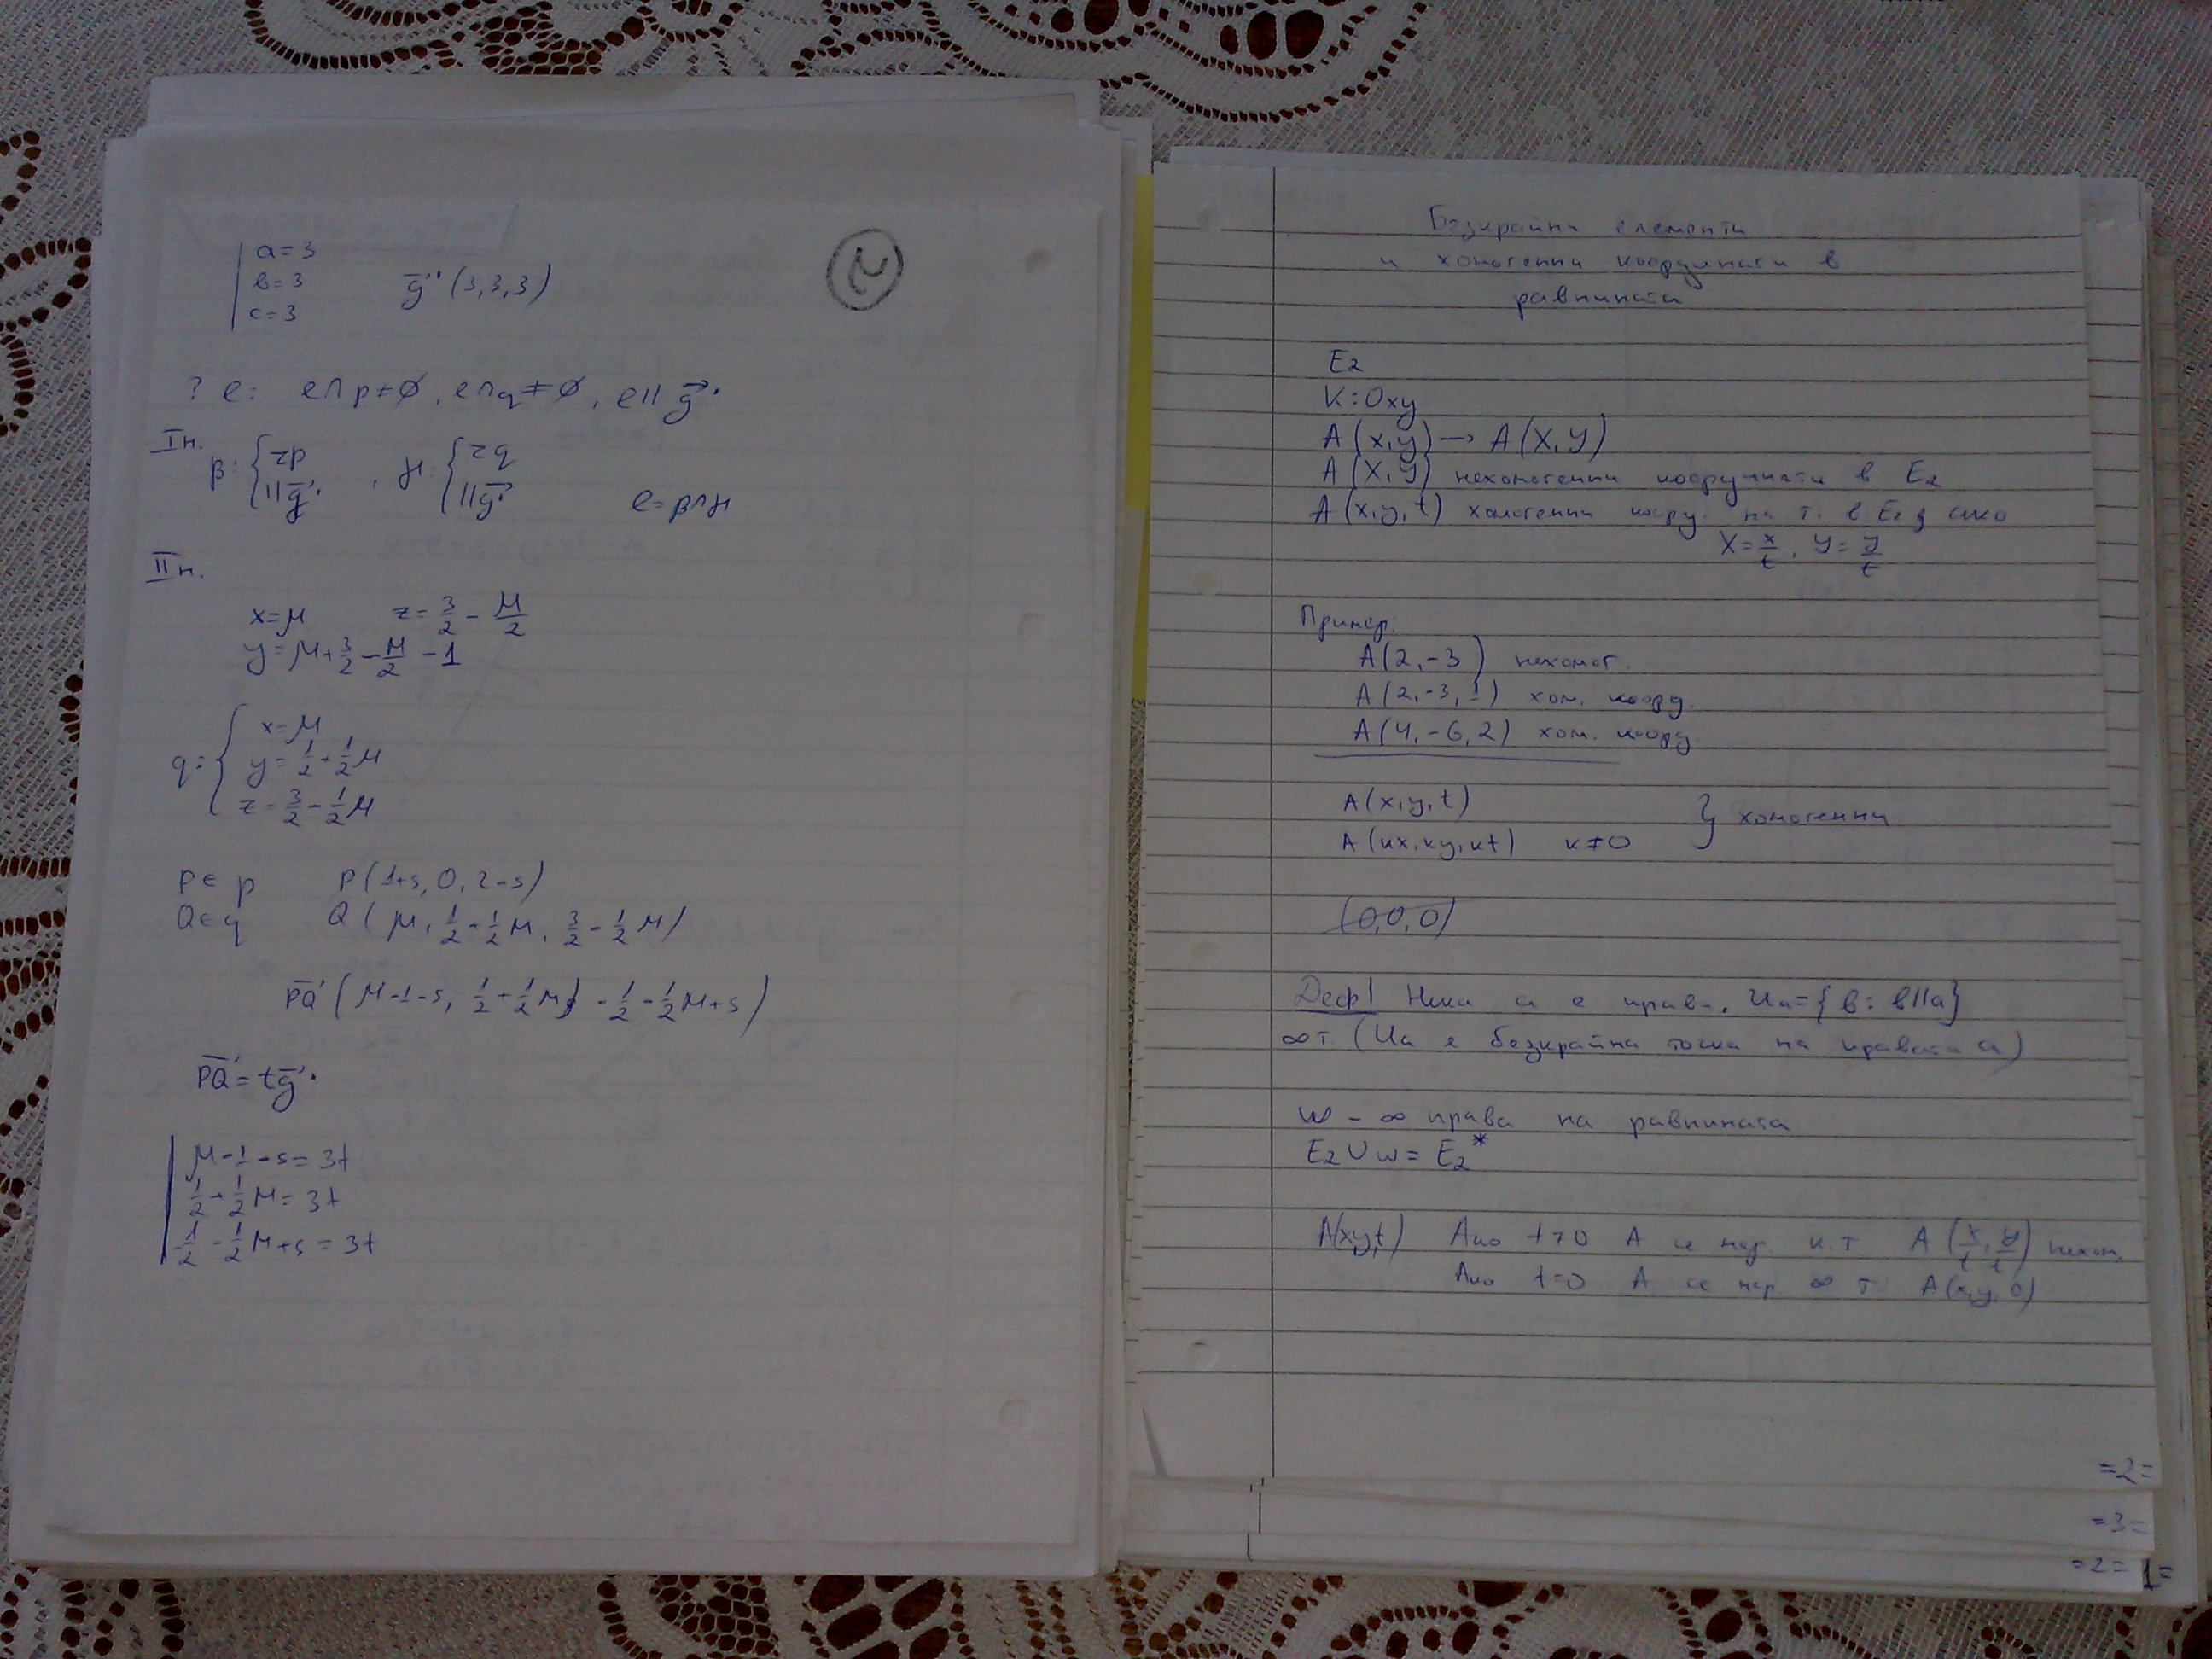 a=3
b=3
c=3
g⃗ (3,3,3)
? e: e∩p≠∅, e∩q≠∅, e∥g⃗
I н.
β: { zp
∥g⃗
, μ: { zq
∥g⃗
e=β∩μ
II н.
x=μ z=3/2-μ/2
y=μ+3/2-μ/2-1
q: { x=μ
y=1/2+1/2μ
z=3/2-1/2μ
P∈p P(1+s, 0, 2-s)
Q∈q Q(μ, 1/2+1/2μ, 3/2-1/2μ)
PQ⃗ (μ-1-s, 1/2+1/2μ, -1/2-1/2μ+s)
PQ⃗=tg⃗
μ-1-s=3t
1/2+1/2μ=3t
-1/2-1/2μ+s=3t
Безкрайни елементи
и хомогенни координати в
равнината
E2
K:Oxy
A(x,y)→A(X,Y)
A(X,Y) нехомогенни координати в E2
A(x,y,t) хомогенни коорд. на т. в E2, ако
X=x/t, Y=y/t
Пример.
A(2,-3) нехомог.
A(2,-3,1) хом. коорд.
A(4,-6,2) хом. коорд.
A(x,y,t)
A(kx,ky,kt) k≠0
} хомогенни
(0,0,0)
Деф! Нека a е права. Ua={b: b∥a}
∞ т. (Ua е безкрайна точка на правата a)
w - ∞ права на равнината
E2∪w=E2*
A(x,y,t) Ако t≠0 A се нар. к.т. A(x/t, y/t) нехом.
Ако t=0 A се нар. ∞ т. A(x,y,0)
=2=
=3=
=2=
1=